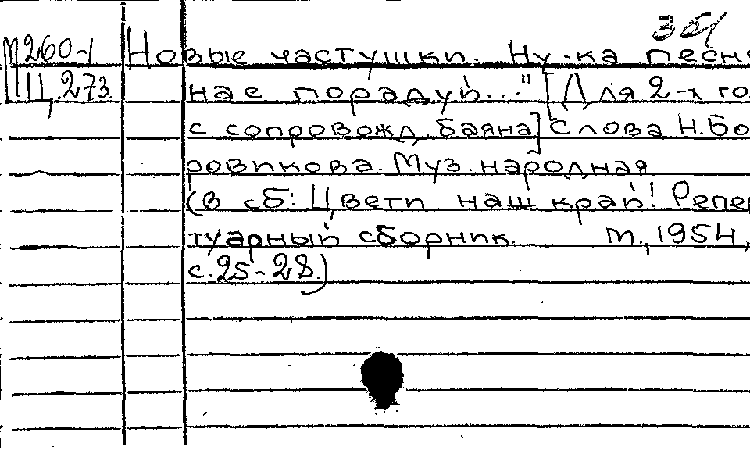 М260-1 Новые частушки. Ну-ка песн
Щ 273 нас порадуй..." [Для 2-х го
с сопровожд. баяна] Слова Н.Бо
ровикова. Муз. народная
(в сб: Цвети наш край! Репер
туарный сборник. М., 1954,
с. 25-28.)